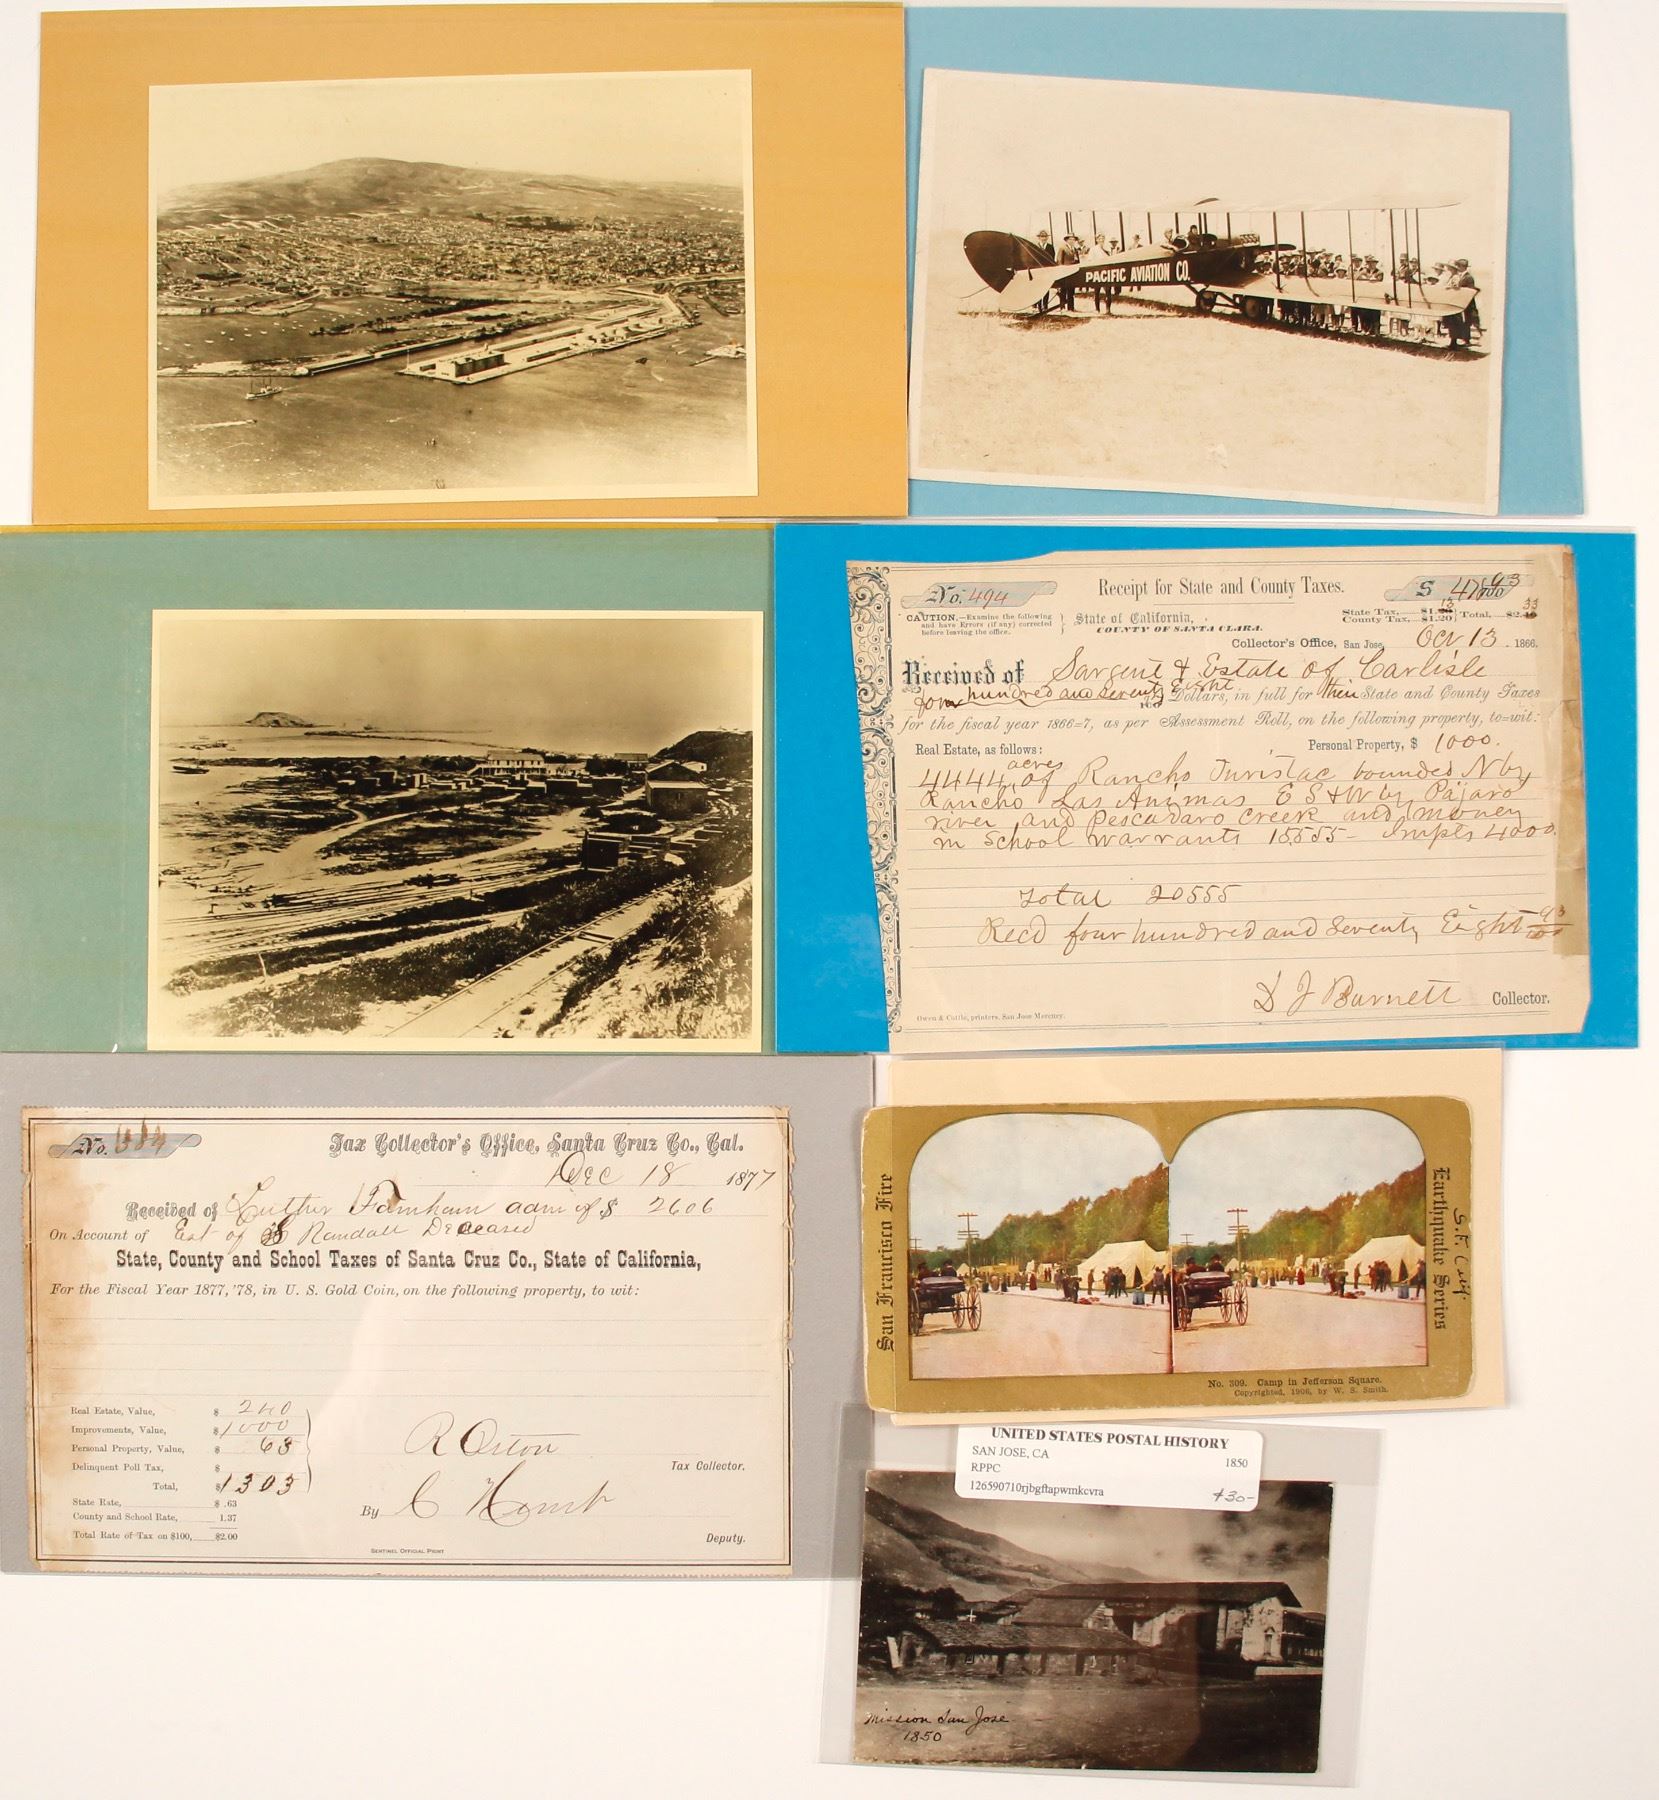 PACIFIC AVIATION CO.
No. 494
Receipt for State and County Taxes.
$ 478 93/100
CAUTION.—Examine the following
and have Errors (if any) corrected
before leaving the office.
State of California,
COUNTY OF SANTA CLARA.
State Tax, $1.13
County Tax, $1.20
Total, $2.33
Collector's Office, San Jose, Oct 13. 1866.
Received of Sargent & Estate of Carlisle
four hundred and seventy Eight Dollars, in full for their State and County Taxes
for the fiscal year 1866=7, as per Assessment Roll, on the following property, to=wit:
Real Estate, as follows: Personal Property, $ 1000.
4444 acres of Rancho Juristac bounded N by
Rancho Las Animas E S & W by Pajaro
river and Pescadaro Creek and money
in School warrants 15555- Impts 4000.
Total 20555
Recd four hundred and Seventy Eight 93/100
D J Burnett Collector.
Owen & Cottle, printers. San Jose Mercury.
No. 1384
Tax Collector's Office, Santa Cruz Co., Cal.
Dec 18 1877
Received of Luther Farnham adm of $ 2606
On Account of Est of S Randall Deceased
State, County and School Taxes of Santa Cruz Co., State of California,
For the Fiscal Year 1877,'78, in U. S. Gold Coin, on the following property, to wit:
Real Estate, Value, $ 240
Improvements, Value, $ 1000
Personal Property, Value, $ 63
Delinquent Poll Tax, $
Total, $ 1303
State Rate, $ .63
County and School Rate, 1.37
Total Rate of Tax on $100, $2.00
R Orton
Tax Collector.
By C
Deputy.
SENTINEL OFFICIAL PRINT
San Francisco Fire
Earthquake Series
S.F. Calif.
No. 309. Camp in Jefferson Square.
Copyrighted, 1906, by W. S. Smith.
UNITED STATES POSTAL HISTORY
SAN JOSE, CA 1850
RPPC
126590710rjbgftapwmkcvra $30-
Mission San Jose
1850